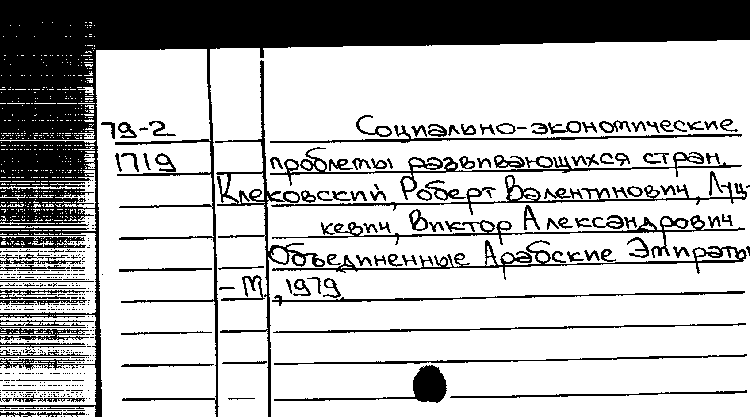 79-2 Социально-экономические
1719 проблемы развивающихся стран.
Клековский, Роберт Валентинович, Луц-
кевич, Виктор Александрович
Объединенные Арабские Эмираты
- М, 1979